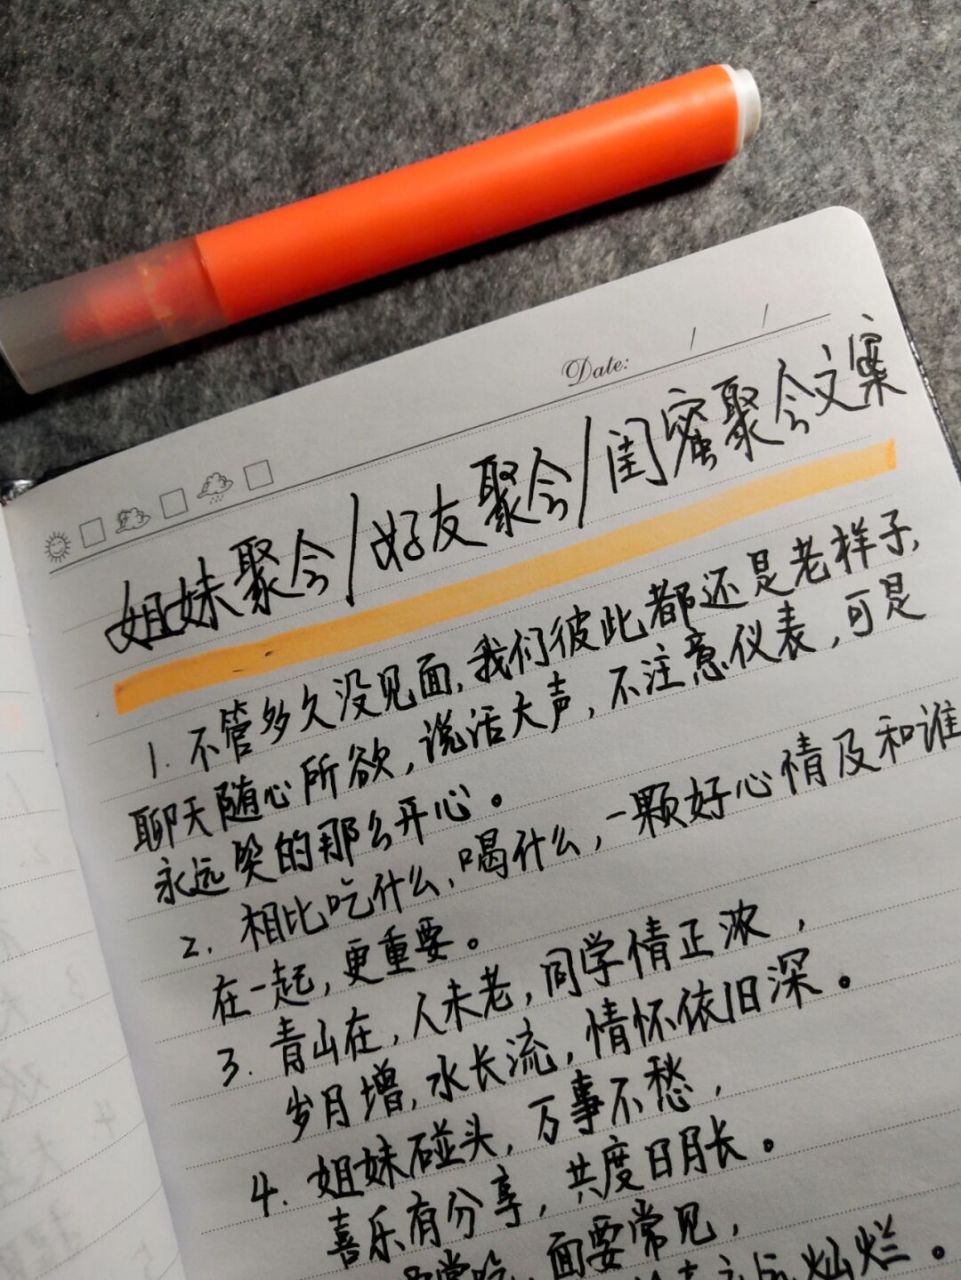 Date: / /
姐妹聚会/好友聚会/闺蜜聚会文案
1. 不管多久没见面,我们彼此都还是老样子,
聊天随心所欲,说话大声,不注意仪表,可是
永远笑的那么开心。
2. 相比吃什么、喝什么,一颗好心情及和谁
在一起,更重要。
3. 青山在,人未老,同学情正浓,
岁月增,水长流,情怀依旧深。
4. 姐妹碰头,万事不愁,
喜乐有分享,共度日月长。
常吃,面要常见,
灿烂。